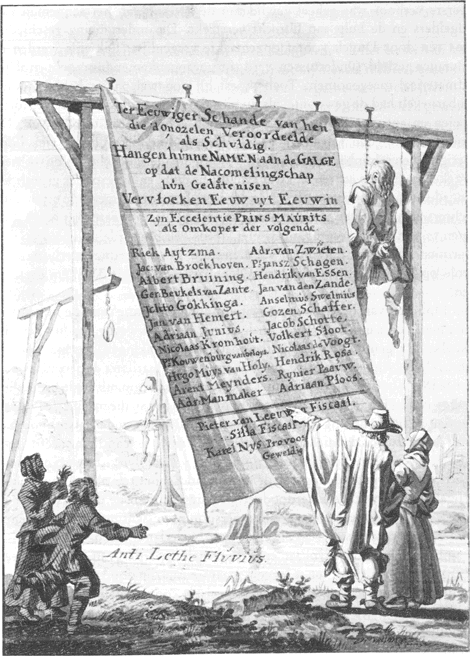 Ter Eeuwiger Schande van hen
die d'onozelen Veroordeelde
als Schuldig.
Hangen hunne NAMEN aan de GALGE
op dat de Nacomelingschap
hun Gedåtenisen
Vervloeken Eeuw uyt Eeuw in
Zyn Eccelentie PRINS MAURITS
als Omkoper der volgende
Riek Aytzma. Adr. van Zwieten.
Jac: van Broekhoven. Pijansz Schagen.
Albert Bruining. Hendrik van Essen.
Ger. Beukels van Zante. Jan van den Zande.
Ichto Gokkinga. Anselmius
Jan van Hemert. Gozen Schaffer.
Adrian Junius. Jacob Schotte.
Nicolaas Kromhout. Volkert Sloot.
Kouwenburg van Nicolaas de Voogt.
Hugo Muys van Holy. Hendrik Rosa.
Arent Meynders. Rynier Paauw.
Adr. Manmaker Adriaan Ploos.
Pieter van Leeuw Fiscaal.
Silla Fiscaal
Karel Nys Provoos
Geweldig
Anti Lethe Fluvius.